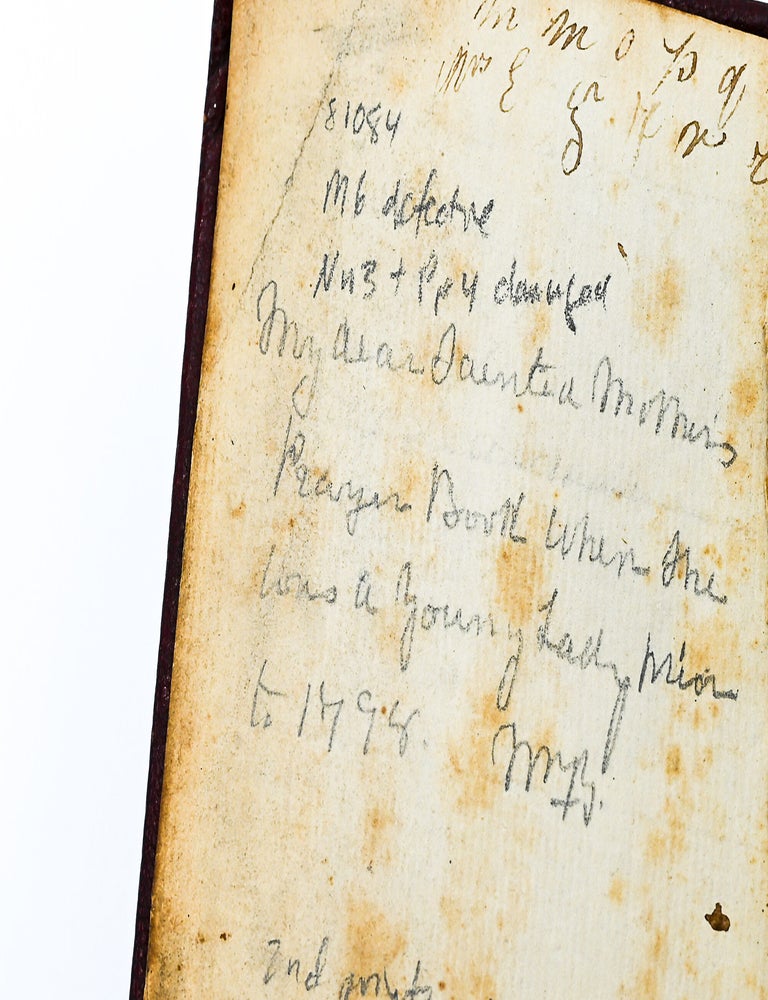 m m o p q
Mrs E
81084
M6 defective
Nn3 + Pp4 damaged
My dear Sainted Mother's
Prayer Book When She
Was a Young Lady prior
to 1798.
2nd